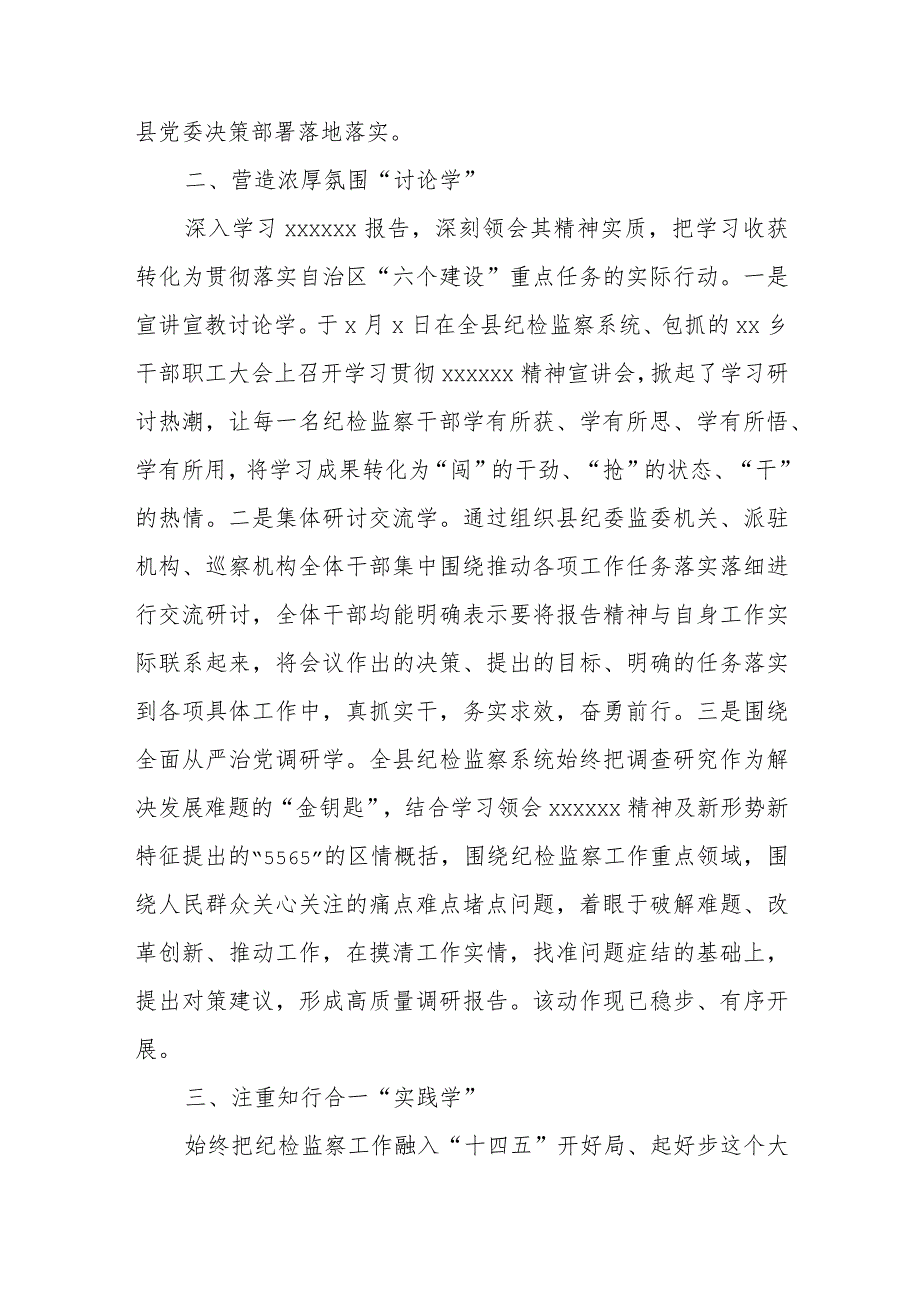 县党委决策部署落地落实。
二、营造浓厚氛围“讨论学”
深入学习 xxxxxx 报告，深刻领会其精神实质，把学习收获
转化为贯彻落实自治区“六个建设”重点任务的实际行动。一是
宣讲宣教讨论学。于 x 月 x 日在全县纪检监察系统、包抓的 xx 乡
干部职工大会上召开学习贯彻 xxxxxx 精神宣讲会，掀起了学习研
讨热潮，让每一名纪检监察干部学有所获、学有所思、学有所悟、
学有所用，将学习成果转化为“闯”的干劲、“抢”的状态、“干”
的热情。二是集体研讨交流学。通过组织县纪委监委机关、派驻
机构、巡察机构全体干部集中围绕推动各项工作任务落实落细进
行交流研讨，全体干部均能明确表示要将报告精神与自身工作实
际联系起来，将会议作出的决策、提出的目标、明确的任务落实
到各项具体工作中，真抓实干，务实求效，奋勇前行。三是围绕
全面从严治党调研学。全县纪检监察系统始终把调查研究作为解
决发展难题的“金钥匙”，结合学习领会 xxxxxx 精神及新形势新
特征提出的“5565”的区情概括，围绕纪检监察工作重点领域，围
绕人民群众关心关注的痛点难点堵点问题，着眼于破解难题、改
革创新、推动工作，在摸清工作实情，找准问题症结的基础上，
提出对策建议，形成高质量调研报告。该动作现已稳步、有序开
展。
三、注重知行合一“实践学”
始终把纪检监察工作融入“十四五”开好局、起好步这个大